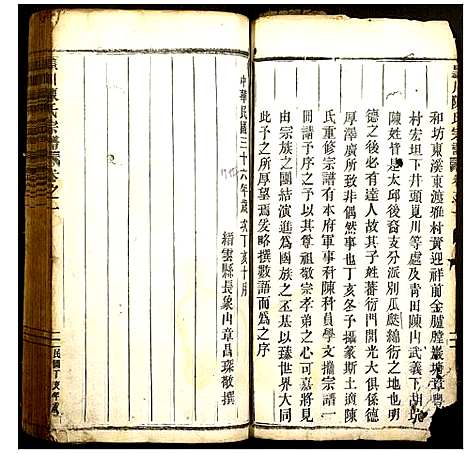 和坊東溪東渡雅村黃迎祥前金臚膛巖塘章豐
村宏坦下井頭覓川等處及青田陳山武義下胡坑
陳姓皆是太邱後裔支分派別瓜瓞綿衍之地也明
德之後必有達人故其子姓蕃衍門閭光大俱係德
厚澤廣所致非偶然事也丁亥冬予篆斯土適陳
氏重修宗譜有本府軍事科陳科員學文攜宗譜一
冊請予序之予以其尊祖敬宗孝弟之心可嘉將見
由宗族之團結演進為國族之丕基以臻世界大同
此予之所厚望焉爰略撰數語而為之序
中華民國三十六年歲次丁亥十月
縉雲縣長象山章昌琛敬撰
川陳氏宗譜
卷之一
民國丁亥年